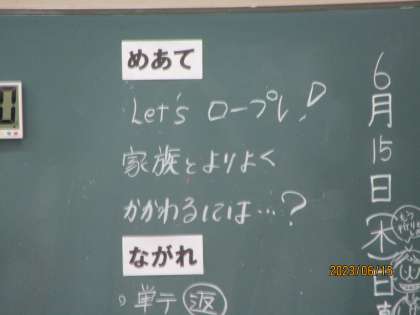 めあて
Let's ロープレ!
家族とよりよく
かかわるには…?
ながれ
単テ 返
6月15日(木)日
2023/06/15